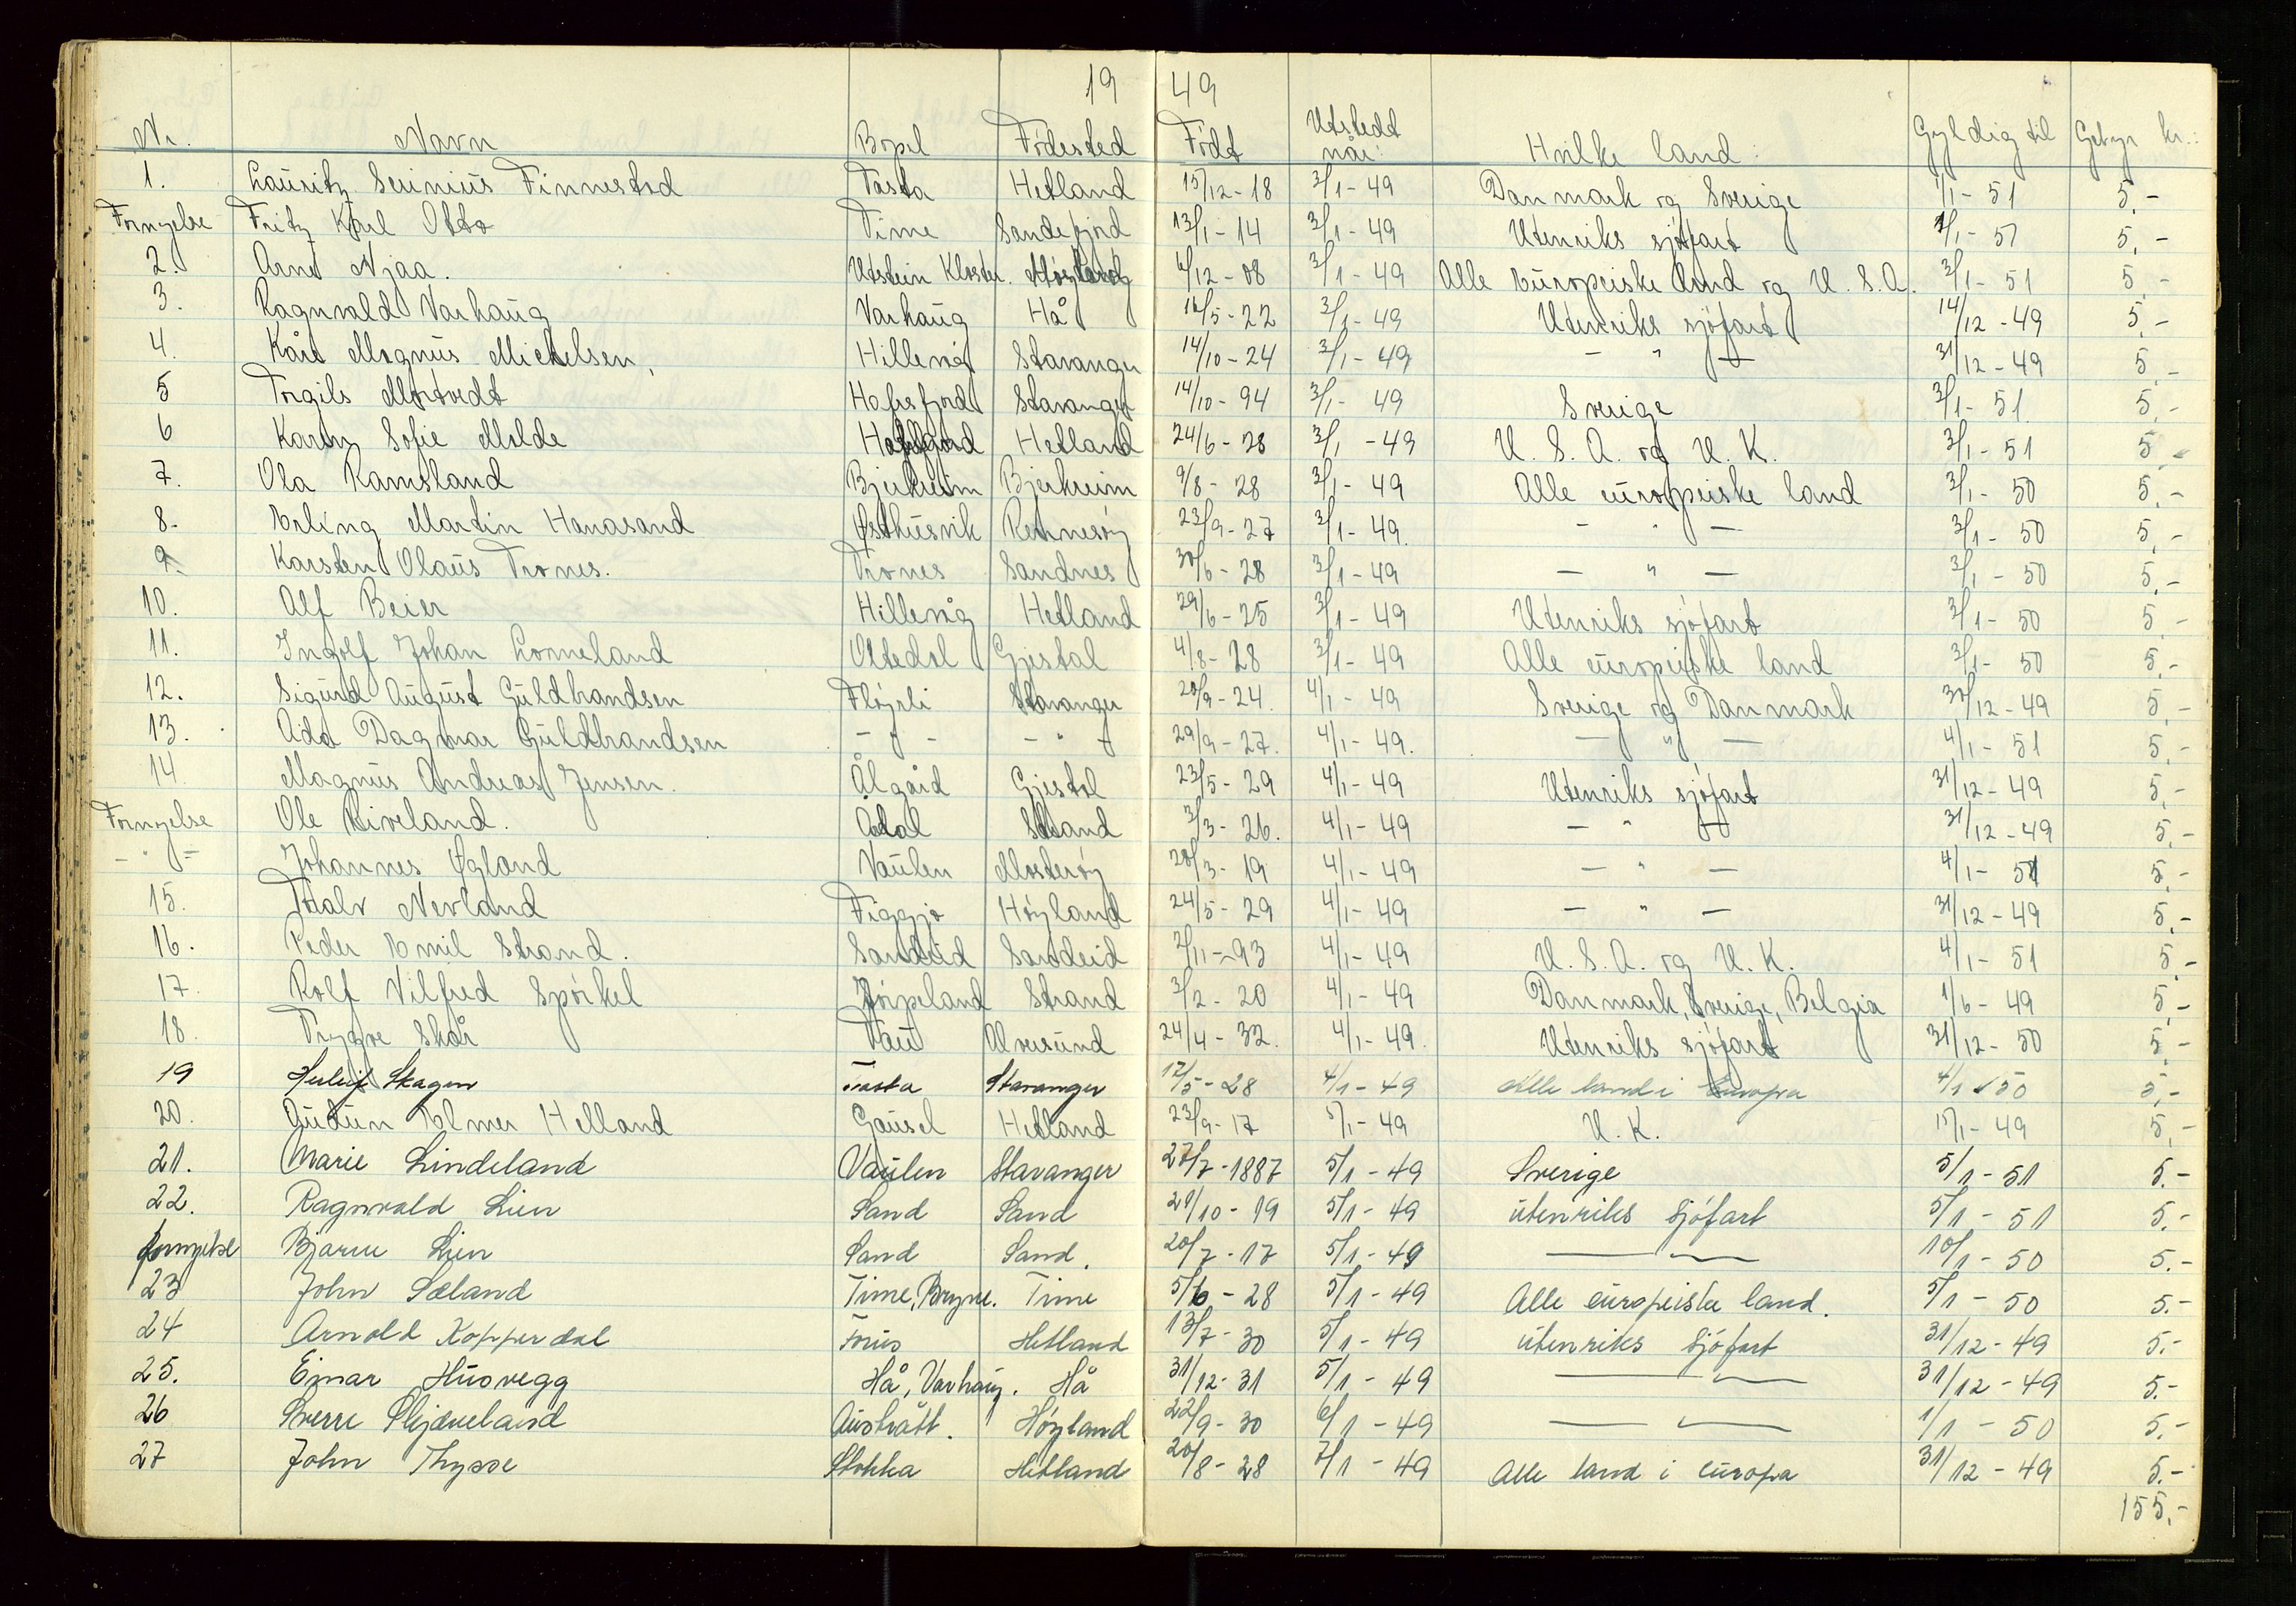 19 49
Nr. Navn Bopel Fødested Født Utstedt når: Hvilke land: Gyldig til Gebyr kr.:
1. Lauritz Serinius Finnestad Tasta Hetland 15/12-18 3/1-49 Danmark og Sverige 1/1-51 5,-
Fornyelse Fritz Karl Otto Time Sandefjord 13/1-14 3/1-49 Utenriks sjøfart 5,-
2. Arne Njaa. Utstein Kloster. 6/12-08 3/1-49 Alle europeiske land og U.S.A. 3/1-51 5,-
3. Ragnvald Varhaug Varhaug Hå 16/5-22 3/1-49 Utenriks sjøfart 14/12-49 5,-
4. Kåre Magnus Michelsen, Hillevåg Stavanger 14/10-24 3/1-49 - " - 31/12-49 5,-
5 Torgils Mortvedt Hafrsfjord Stavanger 14/10-94 3/1-49 Sverige 3/1-51 5,-
6 Karin Sofie Molde Hetland 24/6-28 3/1-49 U.S.A. og U.K. 3/1-51 5,-
7. Ola Ramsland Bjerkreim Bjerkreim 9/8-28 3/1-49 Alle europeiske land 3/1-50 5,-
8. Erling Martin Hanasand Østhusvik Rennesøy 23/9-27 3/1-49. - " - 3/1-50 5,-
9. Karsten Olaus Trones. Trones Sandnes 30/6-28 3/1-49 - " - 3/1-50 5,-
10. Alf Beier Hillevåg Hetland 29/6-25 3/1-49 Utenriks sjøfart 3/1-50 5,-
11. Ingolf Johan Lomeland Oltedal Gjestal 4/8-28 3/1-49 Alle europeiske land 3/1-50 5,-
12. Sigurd August Guldbrandsen Fløyrli Stavanger 20/9-24. 4/1-49 Sverige og Danmark 30/12-49 5,-
13. Add Dagmar Guldbrandsen - " - - " - 29/9-27. 4/1-49. - " - 4/1-51 5,-
14. Magnus Andreas Jensen. Ålgård Gjestal 23/5-29 4/1-49 Utenriks sjøfart 31/12-49 5,-
Fornyelse Ole Riveland. Årdal 3/3-26. 4/1-49 - " - 31/12-49 5,-
- " - Johannes Øgland Vaulen Mosterøy 20/3-19 4/1-49 - " - 4/1-51 5,-
15. Toralv Nevland Figgjo Høyland 24/5-29 4/1-49 - " - 31/12-49 5,-
16. Peder Emil Strand. Sandeid Sandeid 2/11-93 4/1-49 U.S.A. og U.K. 4/1-51 5,-
17. Rolf Vilfred Spørkel Jørpeland Strand 3/2-20 4/1-49 Danmark, Sverige, Belgia 1/6-49 5,-
18. Trygve Skår Tau Alversund 24/4-32. 4/1-49. Utenriks sjøfart 31/12-50 5,-
19 Herleif Skagen Tasta Stavanger 17/5-28 4/1-49 Alle land i Europa 4/1-50 5,-
20. Audun Elmer Helland Gausel Hetland 23/9-17 5/1-49 U.K. 15/1-49 5,-
21. Marie Lindeland Vaulen Stavanger 27/7-1887 5/1-49 Sverige 5/1-51 5.-
22. Ragnvald Lien Sand Sand 29/10-19 5/1-49 utenriks sjøfart 5/1-51 5.-
fornyelse Bjarne Lien Sand Sand. 20/7-17 5/1-49 - " - 10/1-50 5.-
23 John Sæland Time, Bryne. Time 5/6-28 5/1-49 Alle europeiske land. 5/1-50 5.-
24 Arnold Kopperdal Forus Hetland 13/7-30 5/1-49 utenriks sjøfart 31/12-49 5.-
25. Einar Husvegg Hå, Varhaug. Hå 31/12-31 5/1-49 - " - 31/12-49 5.-
26 Sverre Skjæveland Austrått. Høyland 22/9-30 6/1-49 - " - 1/1-50 5.-
27 John Thysse Stokka Hetland 20/8-28 7/1-49 Alle land i europa 31/12-49 5.-
155,-